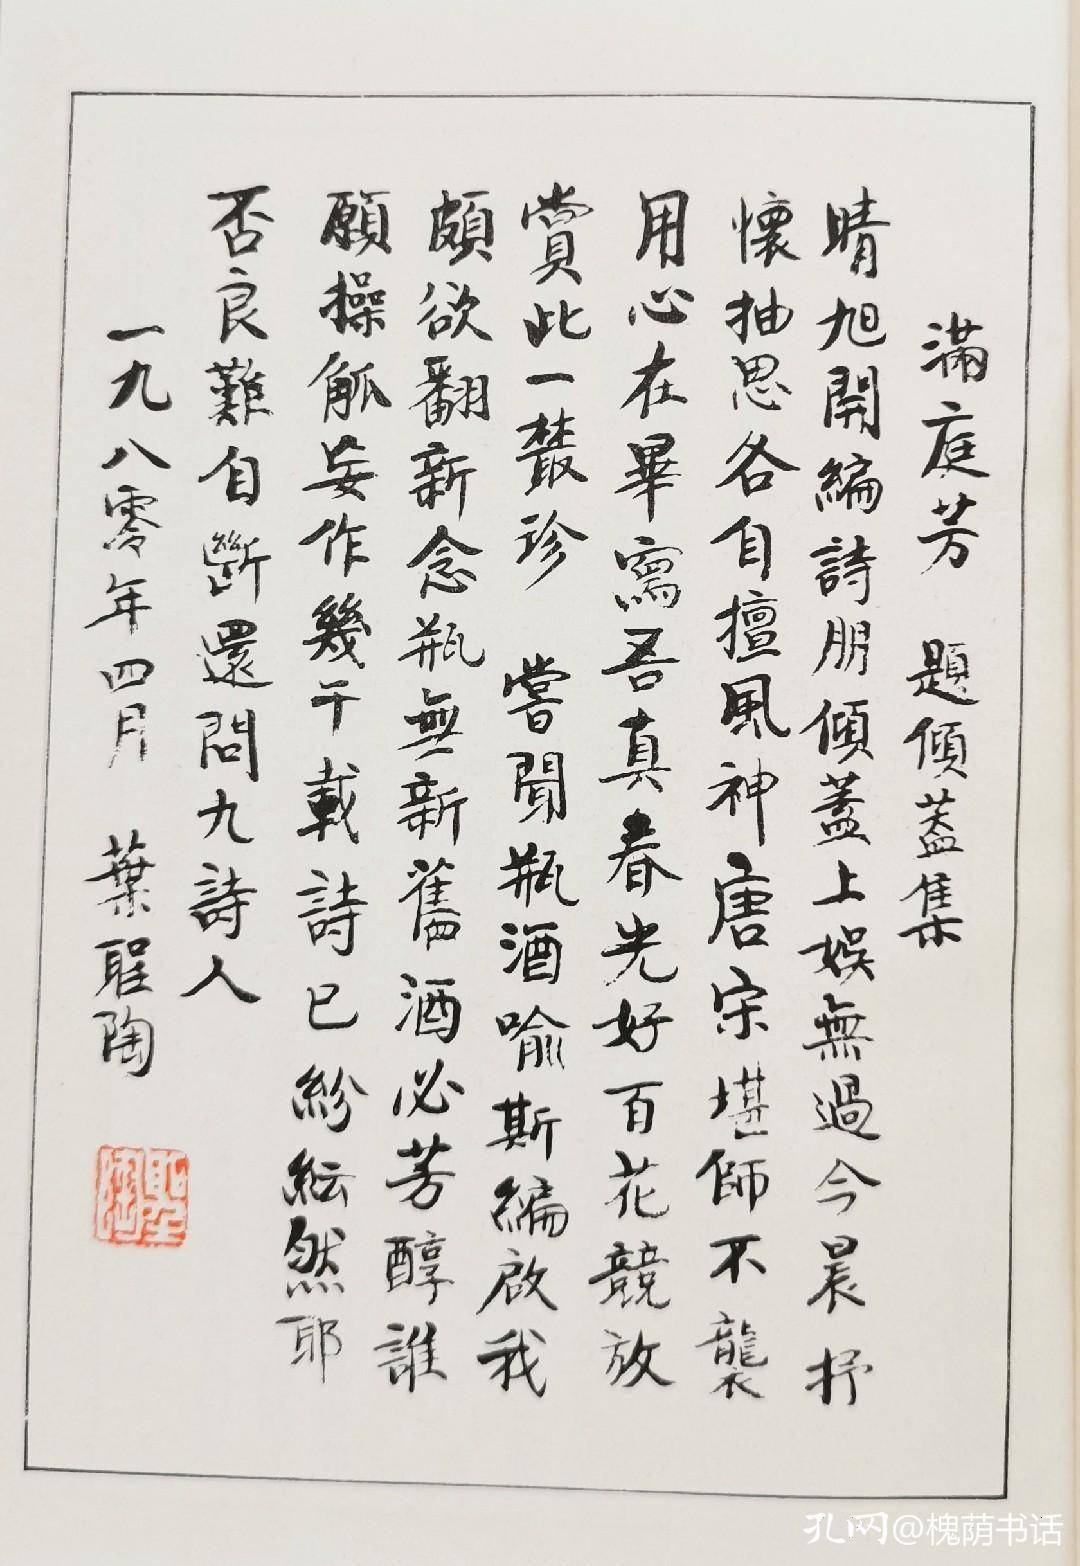 滿庭芳　題傾蓋集
晴旭開編詩朋傾蓋上娛無過今晨抒
懷抽思各自擅風神唐宋堪師不襲
用心在畢寫吾真春光好百花競放
賞此一叢珍　嘗聞瓶酒喻斯編啟我
頗欲翻新念瓶無新舊酒必芳醇誰
願操觚妄作幾千載詩已紛紜然耶
否良難自斷還問九詩人
一九八零年四月　葉聖陶
聖陶
孔网@槐荫书话